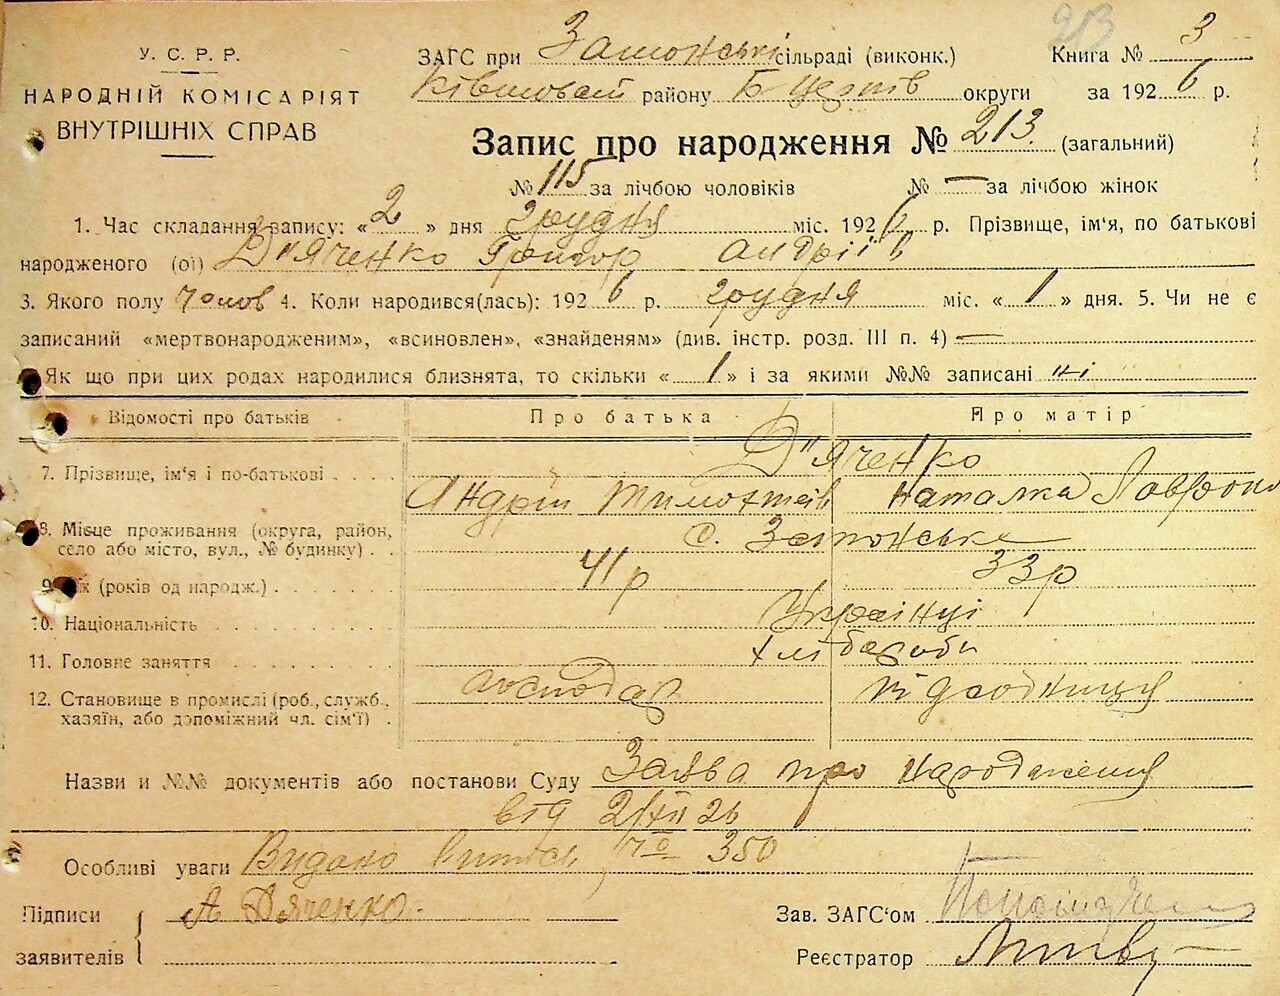 213
У.С.Р.Р.
НАРОДНІЙ КОМІСАРІЯТ
ВНУТРІШНІХ СПРАВ
ЗАГС при сільраді (виконк.) Книга № 3
району Б Церків округи за 1926 р.
Запис про народження № 213. (загальний)
№ 115 за лічбою чоловіків № — за лічбою жінок
1. Час складання запису: «2» дня грудня міс. 1926 р. Прізвище, ім'я, по батькові
народженого (ої) Д"яченко Григор Андріїв
3. Якого полу чолов 4. Коли народився(лась): 1926 р. грудня міс. «1» дня. 5. Чи не є
записаний «мертвонародженим», «всиновлен», «знайденям» (див. інстр. розд. III п. 4) —
Як що при цих родах народилися близнята, то скільки «1» і за якими №№ записані
Відомості про батьків Про батька Про матір
7. Прізвище, ім'я і по-батькові . . . . Д"яченко
Андрій Тимохтеїв Наталка
8. Місце проживання (округа, район,
село або місто, вул., № будинку) . . с.
9. Вік (років од народж.) . . . . . . . 41 р 33 р
10. Національність . . . . . . . . . . Українці
11. Головне заняття . . . . . . . . . хлібороби
12. Становище в промислі (роб., служб.,
хазяїн, або допоміжний чл. сім'ї) . господар
Назви и №№ документів або постанови Суду Заява про народження
від 2/XII 26
Особливі уваги Видано витяг 350
Підписи
заявителів А Дяченко.
Зав. ЗАГС'ом
Реєстратор